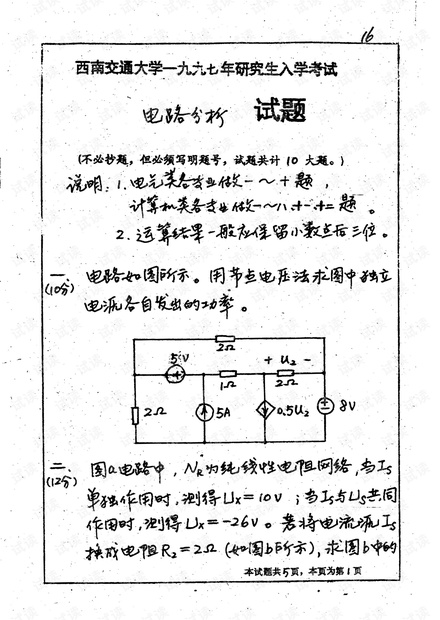 16
西南交通大学一九九七年研究生入学考试
电路分析 试题
(不必抄题，但必须写明题号，试题共计 10 大题。)
说明：1.电气类各专业做一～十题，
计算机类各专业做一～八、十一、十二题。
2.运算结果一般应保留小数点后三位。
一、电路如图所示。用节点电压法求图中独立
(10分) 电源各自发出的功率。
2Ω
5V + U₂ -
1Ω 2Ω
2Ω 5A 0.5U₂ 8V
二、图a电路中，N_R为纯线性电阻网络，当I_S
(12分) 单独作用时，测得U_x=10V；当I_S与U_S共同
作用时，测得U_x=-26V。若将电流源I_S
换成电阻R₂=2Ω(如图b所示)，求图b中的
本试题共5页，本页为第1页